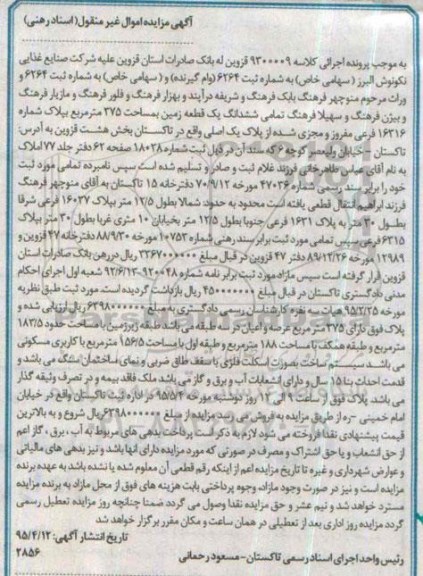 آگهی مزایده اموال غیر منقول (اسناد رهنی)
به موجب پرونده اجرائی کلاسه ۹۳۰۰۰۰۹ قزوین له بانک صادرات استان قزوین علیه شرکت صنایع غذایی
تکونوش البرز (سهامی خاص) به شماره ثبت ۶۲۶۴ (وام گیرنده) و (سهامی خاص) به شماره ثبت ۶۲۶۴ و
وراث مرحوم منوچهر فرهنگ بابک فرهنگ و شریفه درآیند و بهزار فرهنگ و فلور فرهنگ و مازیار فرهنگ
و بیژن فرهنگ و سهیلا فرهنگ تمامی ششدانگ یک قطعه زمین بمساحت ۳۷۵ مترمربع بپلاک شماره
۱۶۳۱۶ فرعی مفروز و مجزی شده از پلاک یک اصلی واقع در تاکستان بخش هشت قزوین به آدرس:
تاکستان - خیابان ولیعصر کوچه ۶ که سند آن در ذیل ثبت شماره ۱۸۰۲۸ صفحه ۶۲ دفتر جلد ۷۷ املاک
به نام آقای عباس طاهرخانی فرزند غلام ثبت و صادر و تسلیم شده است سپس نامبرده تمامی مورد ثبت
خود را برابر سند رسمی شماره ۴۷۰۳۶ مورخه ۷۰/۹/۱۲ دفترخانه ۱۵ تاکستان به آقای منوچهر فرهنگ
فرزند ابراهیم انتقال قطعی یافته است محدود به حدود: شمالا بطول ۱۲/۵ متر بپلاک ۱۶۰۳۷ فرعی شرقا
بطول ۳۰ متر به پلاک ۱۶۳۱ فرعی جنوبا بطول ۱۲/۵ متر بخیابان ۱۰ متری غربا بطول ۳۰ متر بپلاک
۶۳۱۵ فرعی سپس تمامی مورد ثبت برابر سند رهنی شماره ۱۰۷۵۳ مورخه ۸۸/۹/۳۰ دفترخانه ۴۷ قزوین و
۱۲۹۸۹ مورخه ۸۹/۱۲/۲۶ دفتر ۴۷ قزوین در قبال مبلغ ۳۳۶۷۰۰۰۰۰۰ ریال در رهن بانک صادرات استان
قزوین قرار گرفته است سپس مازاد مورد ثبت برابر نامه شماره ۹۲۰۰۴۸-۹۲/۶/۱۳ شعبه اول اجرای احکام
مدنی دادگستری تاکستان در قبال مبلغ ۴۵۰۰۰۰۰۰۰ ریال بازداشت گردیده است. مورد ثبت طبق نظریه
مورخه ۹۵/۲/۲۵ هیات سه نفره کارشناسان رسمی دادگستری به مبلغ ۶۳۹۸۰۰۰۰۰۰ ریال ارزیابی شده و
پلاک فوق دارای ۳۷۵ متر مربع عرصه و اعیان در سه طبقه می باشد طبقه زیرزمین با مساحت حدود ۱۸۳/۵
مترمربع و طبقه همکف با مساحت ۱۸۸ مترمربع و طبقه اول با مساحت ۱۵۶/۵ مترمربع با کاربری مسکونی
می باشد. سیستم ساخت بصورت اسکلت فلزی با سقف طاق ضربی و نمای ساختمان سنگ می باشد و
قدمت احداث بنا ۱۵ سال و دارای انشعابات آب و برق و گاز می باشد ملک فاقد بیمه و در تصرف وثیقه گذار
می باشد. پلاک فوق از ساعت ۹ الی ۱۲ روز دوشنبه مورخه ۹۵/۵/۴ در اداره ثبت تاکستان واقع در خیابان
امام خمینی -ره از طریق مزایده به فروش می رسد مزایده از مبلغ ۶۳۹۸۰۰۰۰۰۰ ریال شروع و به بالاترین
قیمت پیشنهادی نقدا فروخته می شود لازم به ذکر است پرداخت بدهی های مربوط به آب، برق، گاز اعم
از حق انشعاب و یا حق اشتراک و مصرف در صورتی که مورد مزایده دارای آنها باشد و نیز بدهی های مالیاتی
و عوارض شهرداری و غیره تا تاریخ مزایده اعم از اینکه رقم قطعی آن معلوم شده یا نشده باشد به عهده برنده
مزایده است و نیز در صورت وجود مازاد، وجوه پرداختی بابت هزینه های فوق از محل مازاد به برنده مزایده
مسترد خواهد شد و نیم عشر و حق مزایده نقدا وصول می گردد ضمنا چنانچه روز مزایده تعطیل رسمی
گردد مزایده روز اداری بعد از تعطیلی در همان ساعت و مکان مقرر برگزار خواهد شد
تاریخ انتشار آگهی: ۹۵/۴/۱۲
رئیس واحد اجرای اسناد رسمی تاکستان-مسعود رحمانی
۲۸۵۶